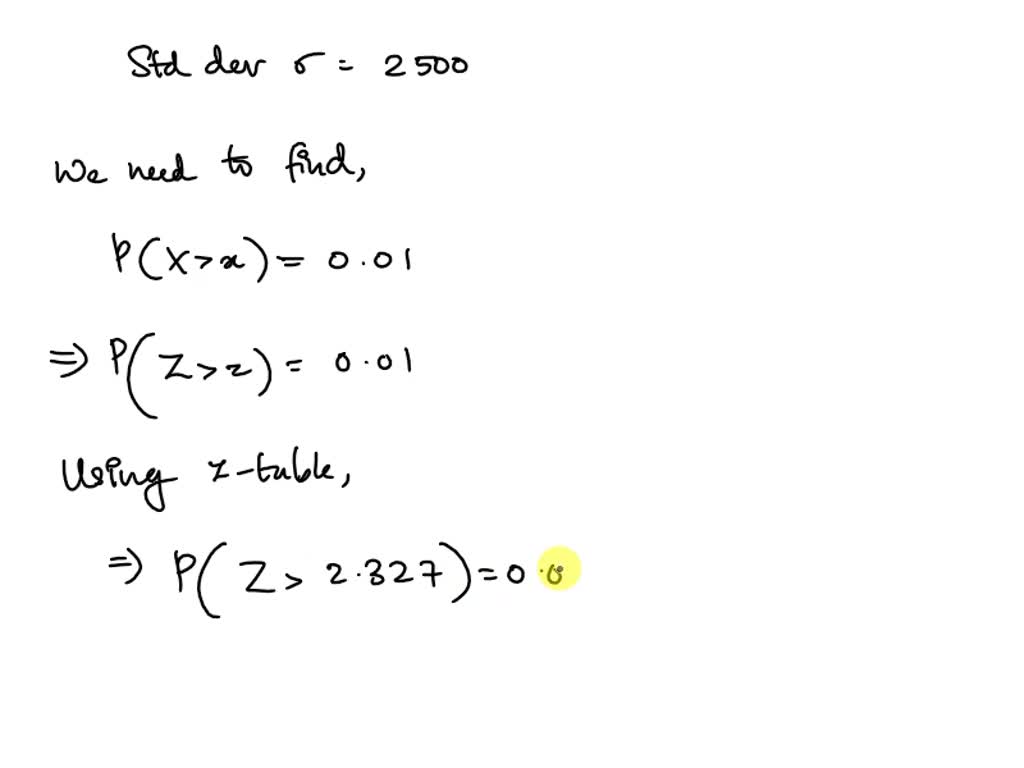 Std dev σ = 2500
We need to find,
P(X>x) = 0.01
⇒ P(Z>z) = 0.01
Using z-table,
⇒ P(Z > 2.327) = 0.0